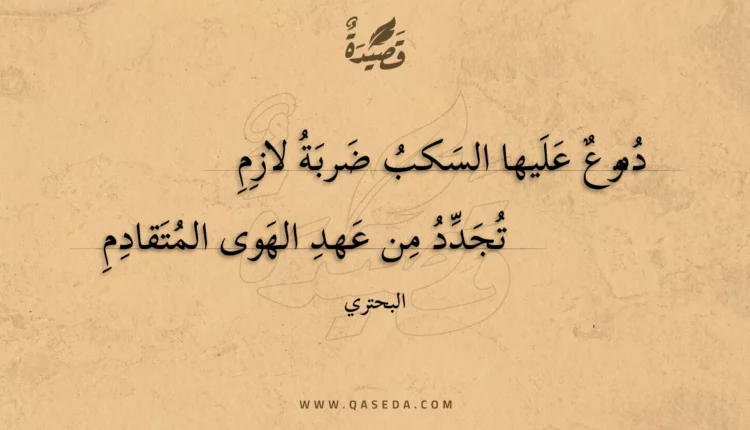 قَصِيْدَةٌ
دُموعٌ عَلَيها السَكبُ ضَربَةُ لازِمِ
تُجَدِّدُ مِن عَهدِ الهَوى المُتَقادِمِ
البحتري
WWW.QASEDA.COM